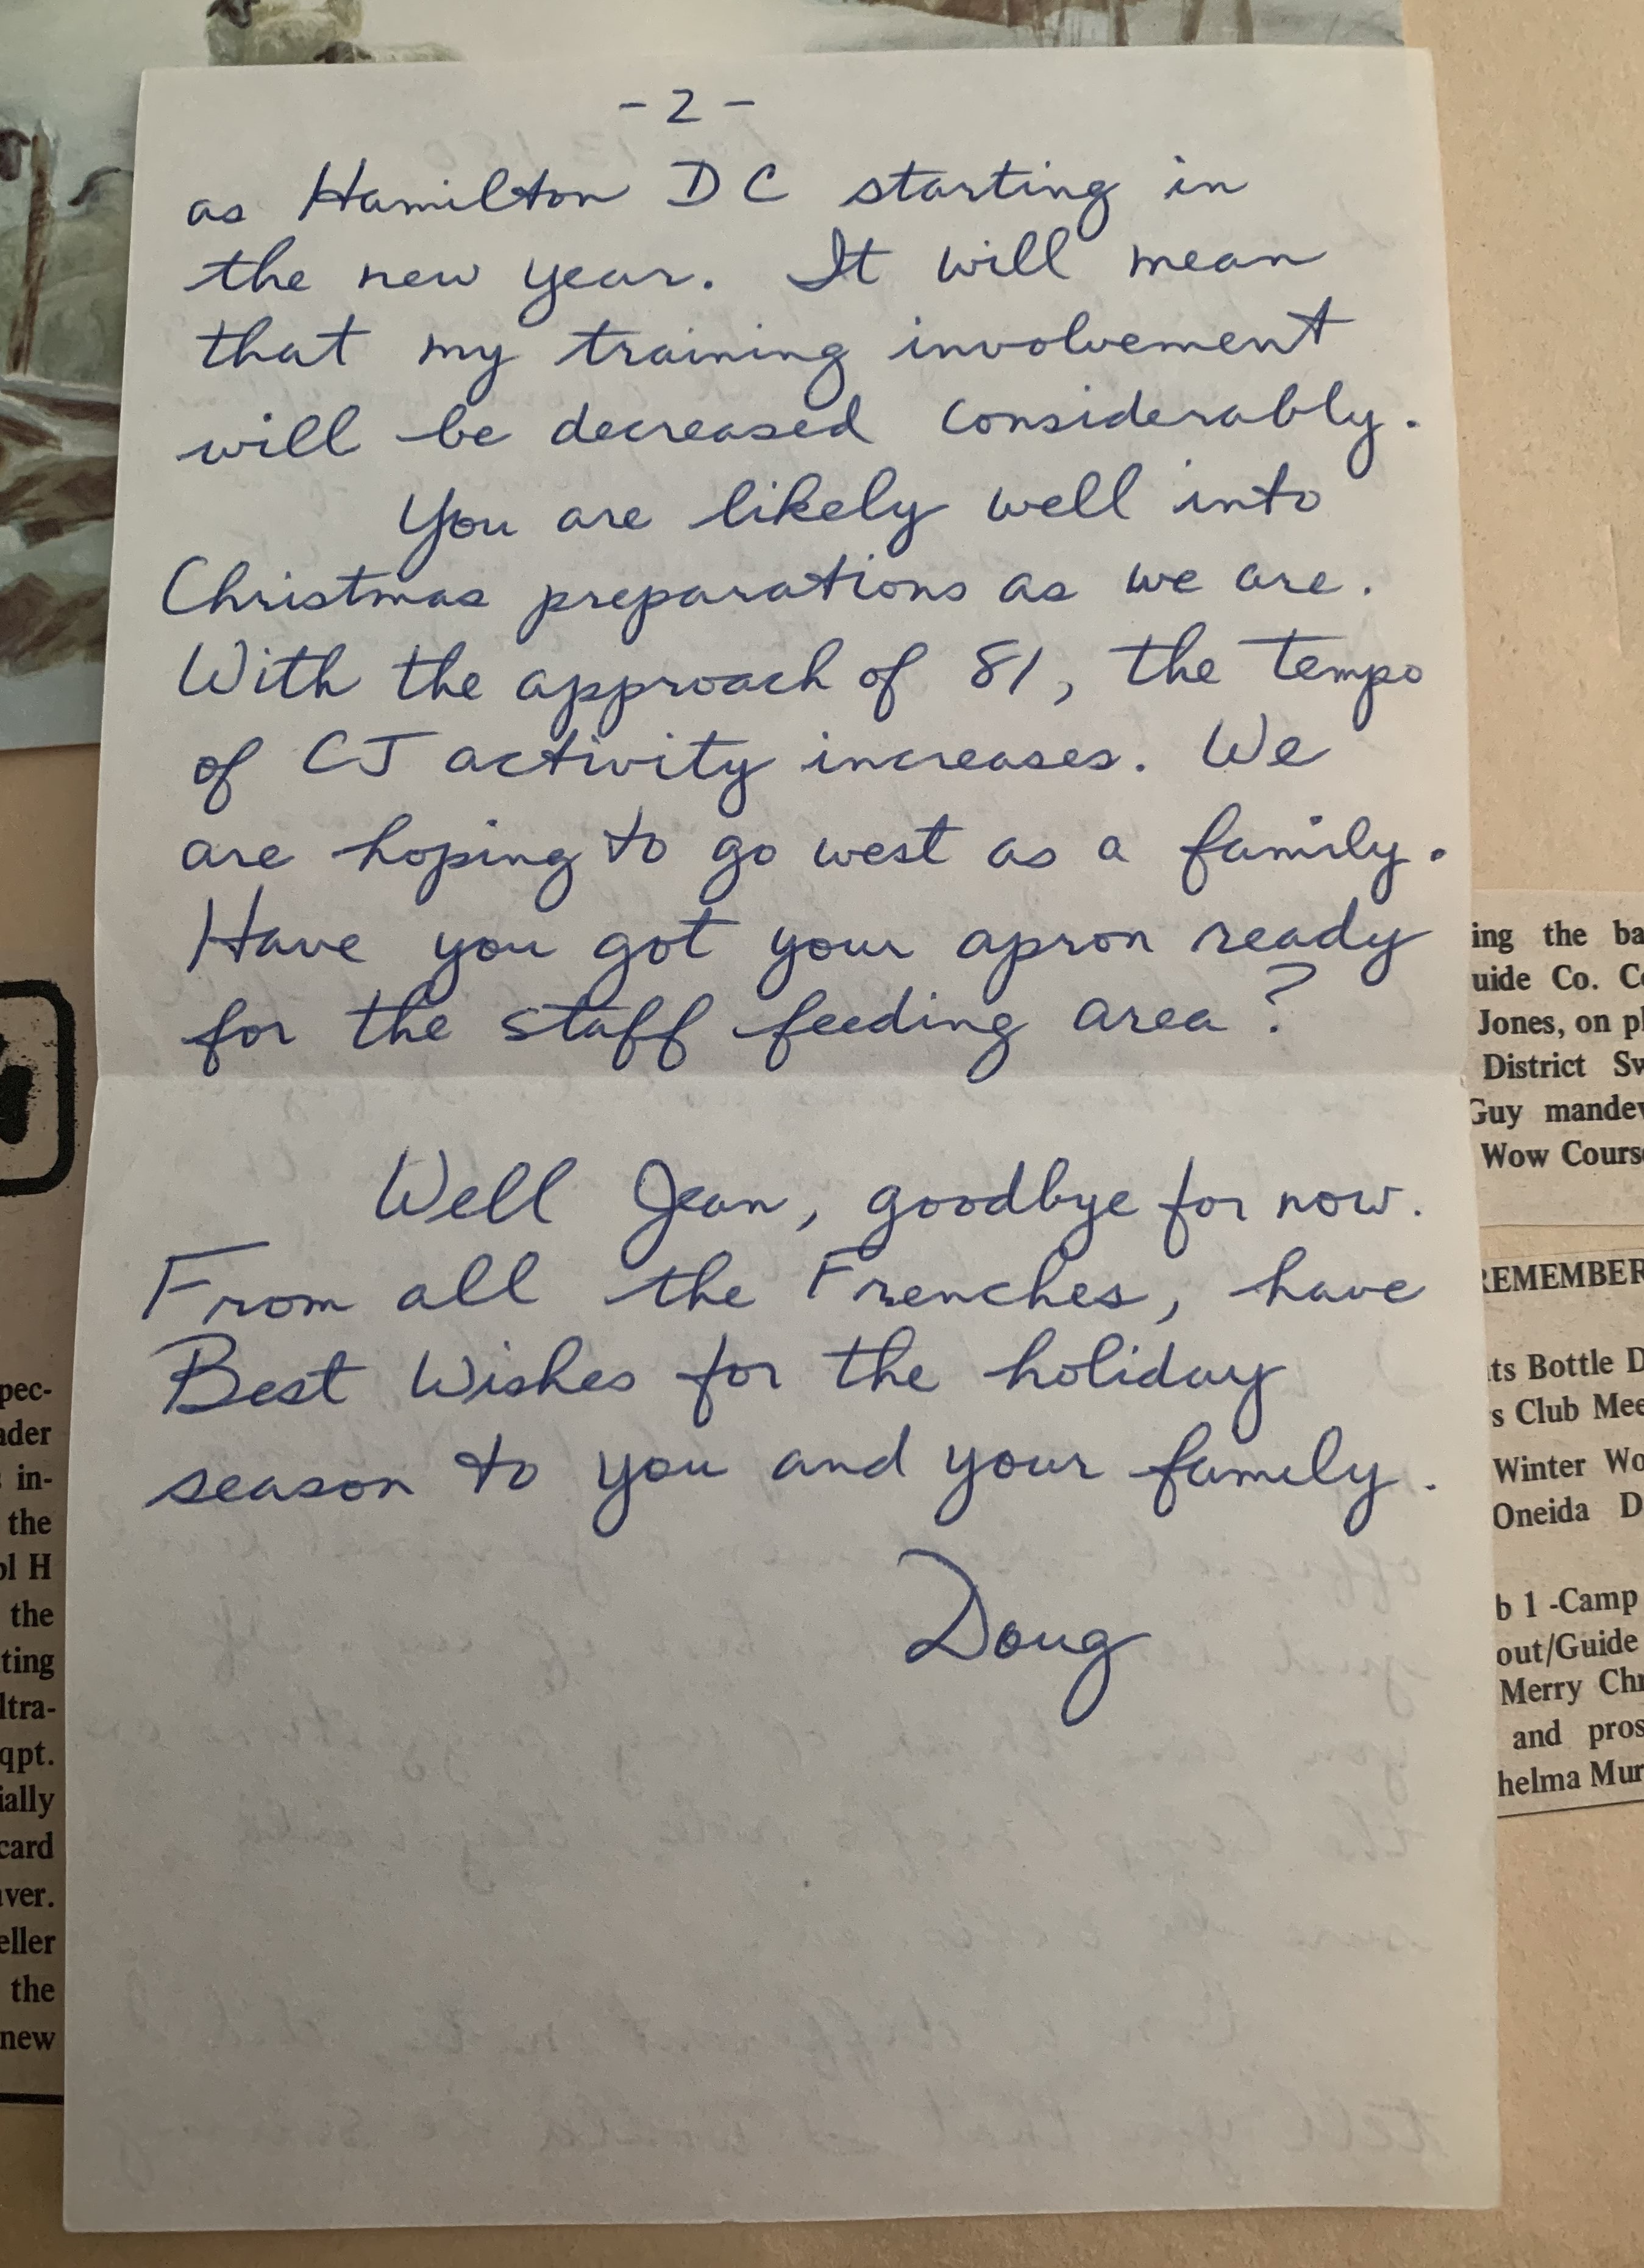 - 2 -
as Hamilton DC starting in
the new year. It will mean
that my training involvement
will be decreased considerably.
You are likely well into
Christmas preparations as we are.
With the approach of 81, the tempo
of CJ activity increases. We
are hoping to go west as a family.
Have you got your apron ready
for the staff feeding area?
Well Jean, goodbye for now.
From all the Frenches, have
Best Wishes for the holiday
season to you and your family.
Doug
pec-
ader
in-
the
ol H
the
ting
ltra-
qpt.
ially
card
aver.
eller
the
new
ing the ba
uide Co. Co
Jones, on pl
District Sw
Guy mandev
Wow Cours
REMEMBER
ts Bottle D
s Club Mee
Winter Wo
Oneida D
b 1 -Camp
out/Guide
Merry Chr
and pros
helma Mur